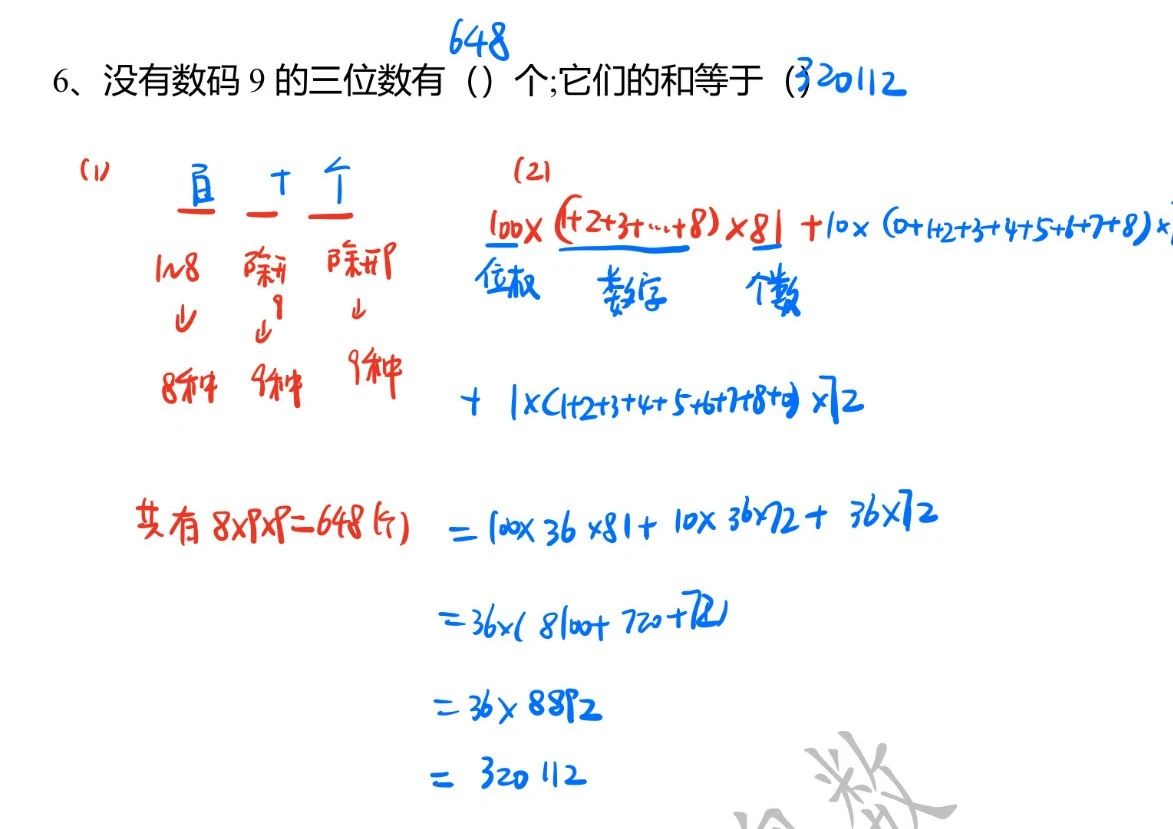 648
6、没有数码 9 的三位数有（）个;它们的和等于（）320112
(1) 百 十 个
1~8 除开9 除开9
↓ ↓ ↓
8种 9种 9种
共有 8×9×9=648(个)
(2)
100×(1+2+3+…+8)×81 +10×(0+1+2+3+4+5+6+7+8)×
位权 数字 个数
+ 1×(1+2+3+4+5+6+7+8+0)×72
=100×36×81+10×36×72+36×72
=36×(8100+720+72)
=36×8892
=320112
数